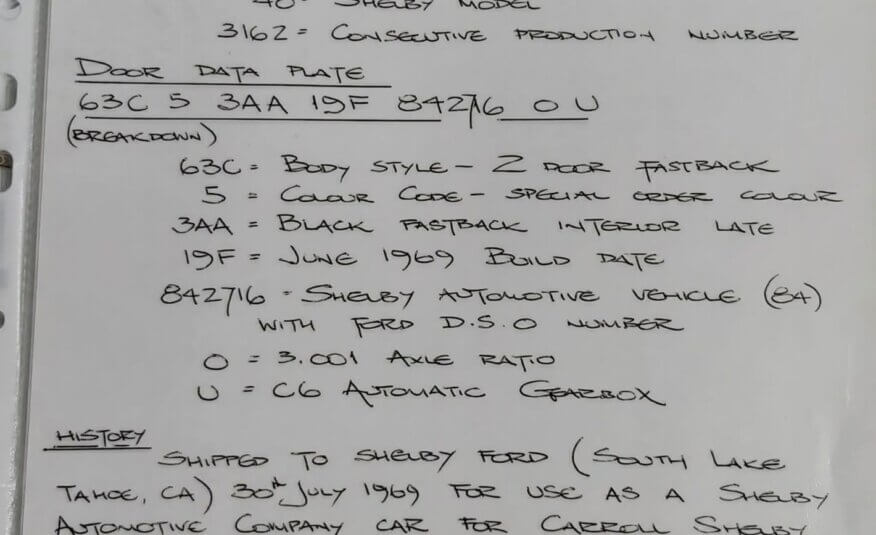 40 - SHELBY MODEL
3162 = CONSECUTIVE PRODUCTION NUMBER
DOOR DATA PLATE
63C 5 3AA 19F 842716 O U
(BREAKDOWN)
63C = BODY STYLE - 2 DOOR FASTBACK
5 = COLOUR CODE - SPECIAL ORDER COLOUR
3AA = BLACK FASTBACK INTERIOR LATE
19F = JUNE 1969 BUILD DATE
842716 - SHELBY AUTOMOTIVE VEHICLE (84)
WITH FORD D.S.O NUMBER
O = 3.001 AXLE RATIO
U = C6 AUTOMATIC GEARBOX
HISTORY
SHIPPED TO SHELBY FORD (SOUTH LAKE
TAHOE, CA) 30th JULY 1969 FOR USE AS A SHELBY
AUTOMOTIVE COMPANY CAR FOR CARROLL SHELBY